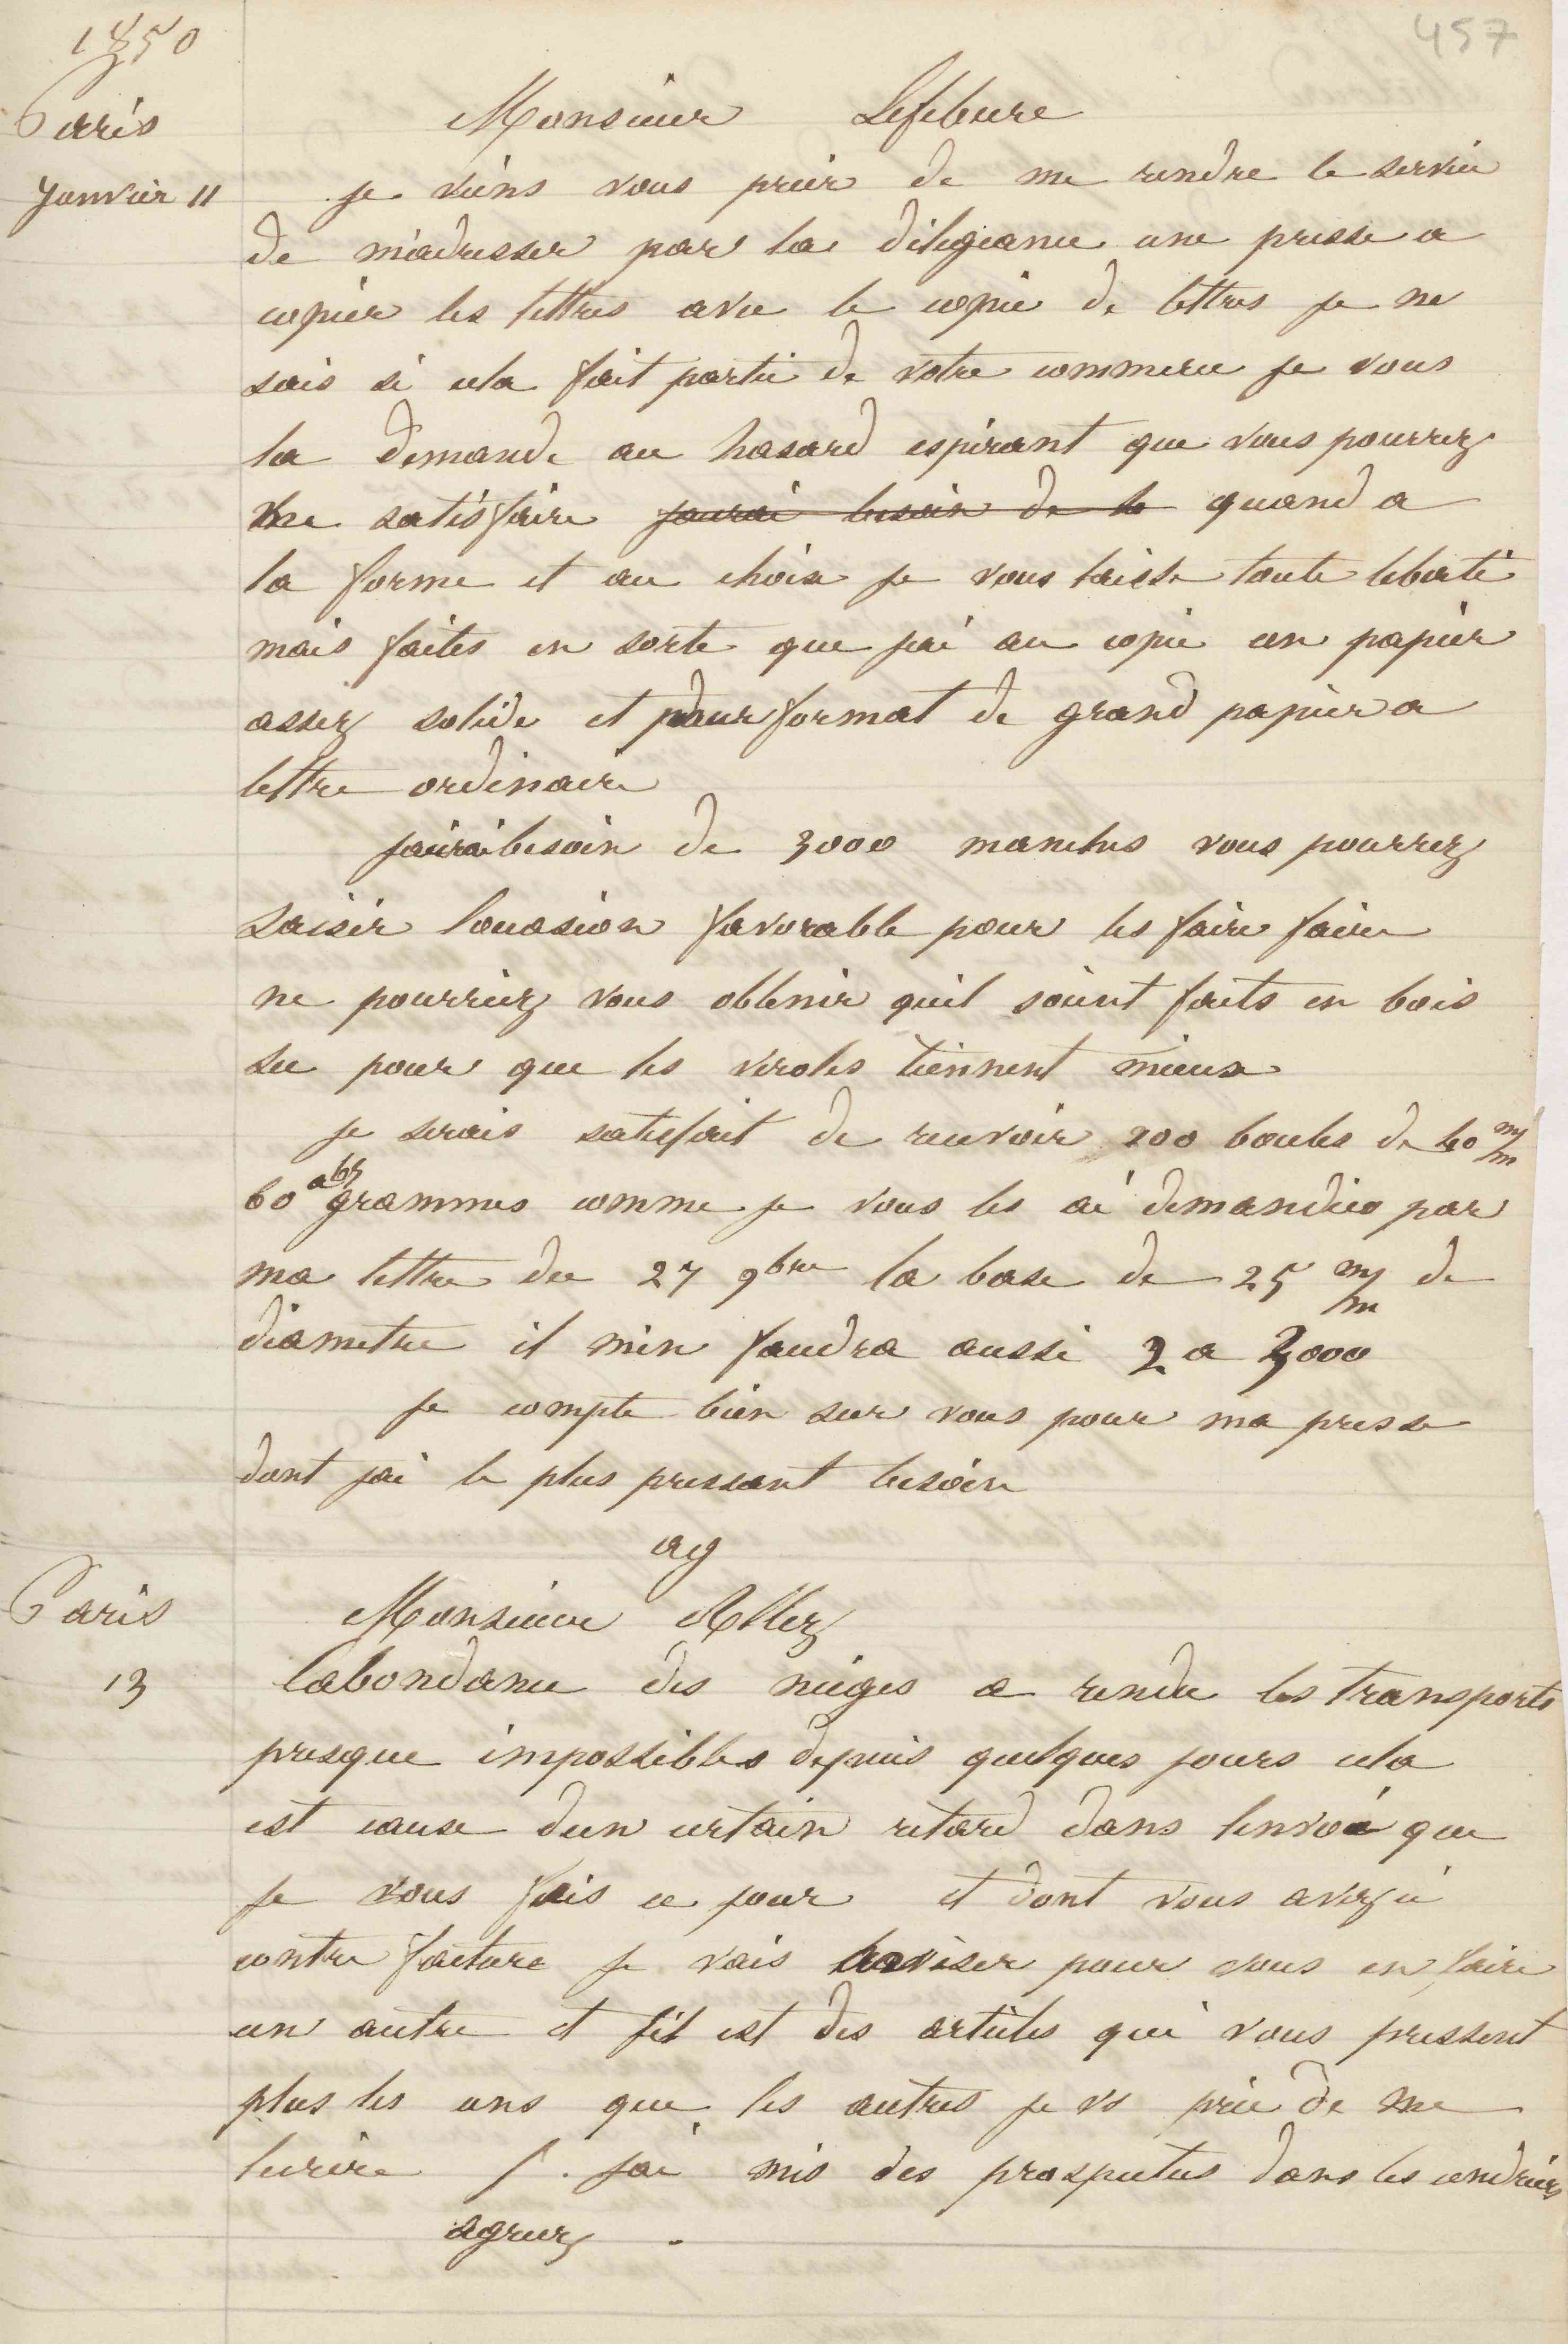 1850
457
Paris
Monsieur Lefebure
Janvier 11
je viens vous prier de me rendre le service
de m'adresser par la diligeance une presse a
copier les lettres avec le copie de lettres je ne
sais si cela fait partie de votre commerce je vous
la demande au hasard espérant que vous pourrez
me satisfaire jaurai besoin de le quand a
la forme et au choix je vous laisse toute liberté
mais faites en sorte que jai au copie un papier
assez solide et pour format de grand papier a
lettre ordinaire
jaurai besoin de 3000 manches vous pourrez
saisir loccasion favorable pour les faire faire
ne pourriez vous obtenir quil soient faits en bois
sec pour que les viroles tiennent mieux
je serais satisfait de recevoir 200 boules de 40 m/m
60 grammes comme je vous les ai demandées par
ma lettre du 27 9bre la base de 25 m/m de
diametre il m'en faudra aussi 2 a 3000
je compte bien sur vous pour ma presse
dont jai le plus pressant besoin
ag
Paris
Monsieur Allez
13
labondance des neiges a rendu les transports
presque impossibles depuis quelques jours cela
est cause dun certain retard dans lenvoi que
je vous fais ce jour et dont vous avez ci
contre facture je vais aviser pour vous en faire
un autre et sil est des articles qui vous pressent
plus les uns que les autres je vs prie de me
lecrire jai mis des prospectus dans les cendriers
agreez .